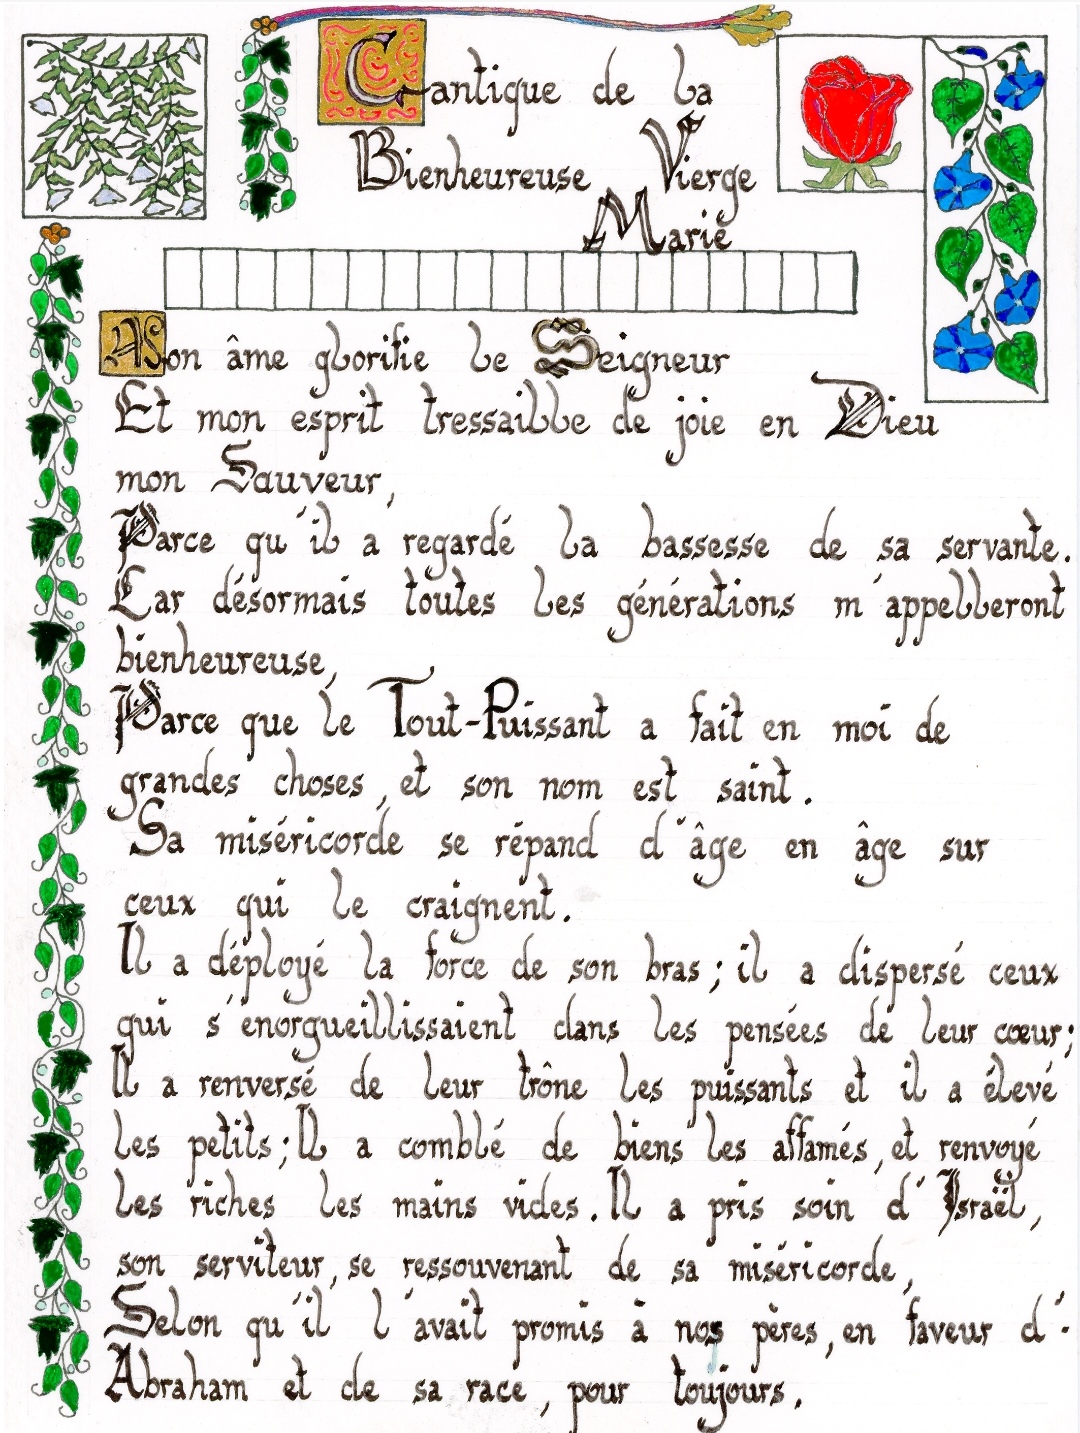 Cantique de la
Bienheureuse Vierge
Marie
Mon âme glorifie le Seigneur
Et mon esprit tressaille de joie en Dieu
mon Sauveur,
Parce qu'il a regardé la bassesse de sa servante.
Car désormais toutes les générations m'appelleront
bienheureuse,
Parce que le Tout-Puissant a fait en moi de
grandes choses, et son nom est saint.
Sa miséricorde se répand d'âge en âge sur
ceux qui le craignent.
Il a déployé la force de son bras; il a dispersé ceux
qui s'enorgueillissaient dans les pensées de leur cœur;
Il a renversé de leur trône les puissants et il a élevé
les petits; Il a comblé de biens les affamés, et renvoyé
les riches les mains vides. Il a pris soin d'Israël,
son serviteur, se ressouvenant de sa miséricorde,
Selon qu'il l'avait promis à nos pères, en faveur d'-
Abraham et de sa race, pour toujours.